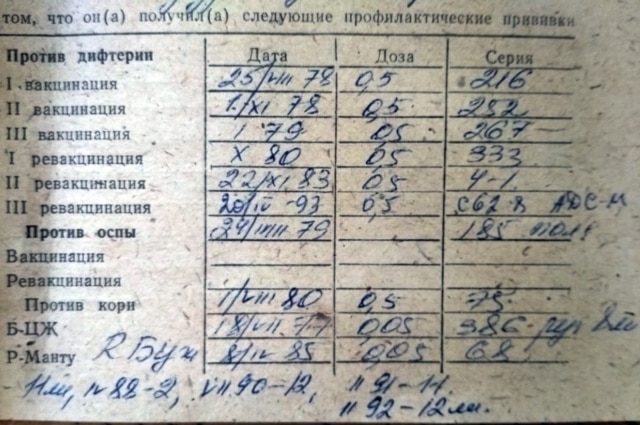 том, что он(а) получил(а) следующие профилактические прививки
Против дифтерии Дата Доза Серия
I вакцинация 25/VIII 78 0,5 216
II вакцинация 1/XI 78 0,5 282
III вакцинация I 79 05 267
I ревакцинация X 80 05 333
II ревакцинация 22/XI 83 05 4-1
III ревакцинация 20/IV-93 0,5 С62-8 АДС-М
Против оспы 24/VIII 79 185
Вакцинация
Ревакцинация
Против кори 1/VIII 80 0,5 75
Б-ЦЖ 18/VII 77 0,05 386
Р-Манту R Буж 8/IV 85 0,05 68
IV 88-2, VII 90-12, II 91-11
II 92-12мм.